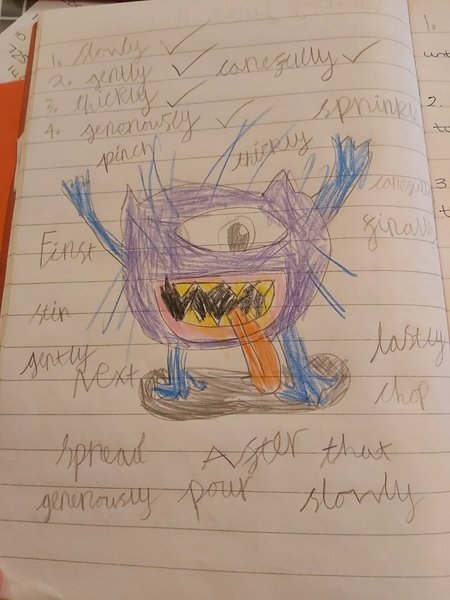 1. slowly
2. gently carefully
3. thickly
4. generously sprinkle
pinch thickly
carefully
First finally
stir
gently lastly
Next chop
spread After that
generously pour slowly
1.
2.
3